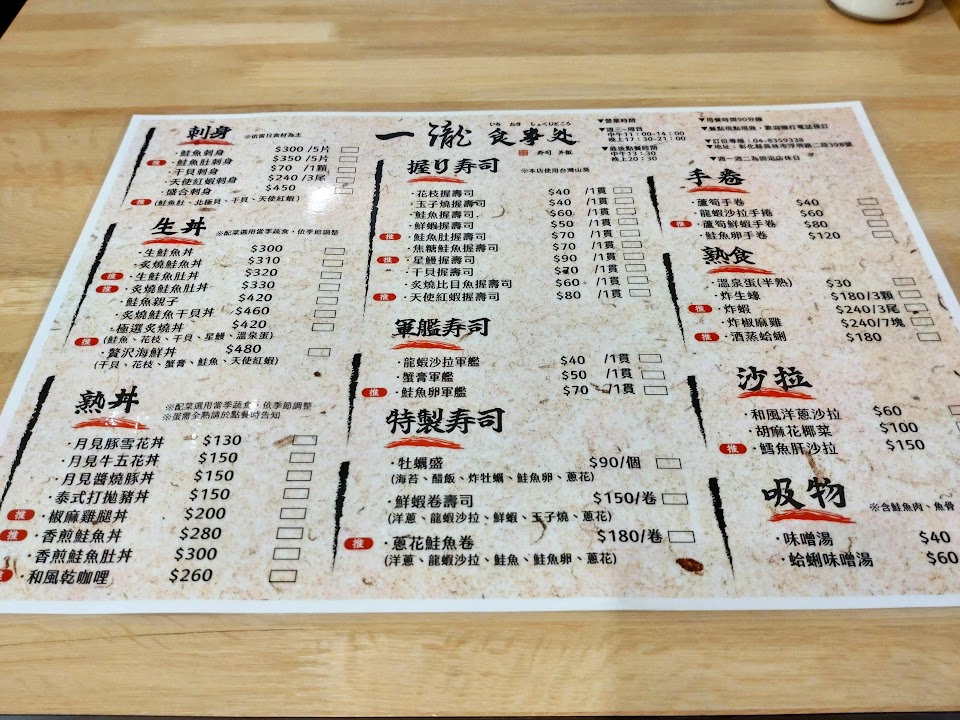 いち たき しょくじどころ
一瀧 食事処
寿司 丼飯
▼營業時間
▼週三~周日
中午11：00-14：00
晚上17：30-21：00
▼最後點餐時間
中午13：30
晚上20：30
▼用餐時間90分鐘
▼餐點現點現做，歡迎撥打電話預訂
▼訂位專線：04-8359338
▼地址：彰化縣員林市浮圳路二段398號
▼週一週二為固定店休日
刺身 ※依當日食材為主
・鮭魚刺身 $300/5片
推 ・鮭魚肚刺身 $350/5片
・干貝刺身 $70 /1顆
・天使紅蝦刺身 $240/3尾
・盛合刺身 $450
推 (鮭魚肚、北極貝、干貝、天使紅蝦)
生丼 ※配菜選用當季蔬食，依季節調整
・生鮭魚丼 $300
・炙燒鮭魚丼 $310
推 ・生鮭魚肚丼 $320
推 ・炙燒鮭魚肚丼 $330
・鮭魚親子 $420
・炙燒鮭魚干貝丼 $460
・極選炙燒丼 $420
推 (鮭魚、花枝、干貝、星鰻、溫泉蛋)
・贅沢海鮮丼 $480
(干貝、花枝、蟹膏、鮭魚、天使紅蝦)
熟丼 ※配菜選用當季蔬食，依季節調整
※蛋需全熟請於點餐時告知
・月見豚雪花丼 $130
・月見牛五花丼 $150
・月見醬燒豚丼 $150
・泰式打拋豬丼 $150
推 ・椒麻雞腿丼 $200
推 ・香煎鮭魚丼 $280
・香煎鮭魚肚丼 $300
推 ・和風乾咖哩 $260
握り寿司 ※本店使用台灣山葵
・花枝握壽司 $40 /1貫
・玉子燒握壽司 $40 /1貫
・鮭魚握壽司 $60 /1貫
・鮮蝦握壽司 $50 /1貫
推 ・鮭魚肚握壽司 $70 /1貫
・焦糖鮭魚握壽司 $70 /1貫
推 ・星鰻握壽司 $90 /1貫
・干貝握壽司 $70 /1貫
・炙燒比目魚握壽司 $60 /1貫
推 ・天使紅蝦握壽司 $80 /1貫
軍艦寿司
・龍蝦沙拉軍艦 $40 /1貫
・蟹膏軍艦 $50 /1貫
推 ・鮭魚卵軍艦 $70 /1貫
特製寿司
・牡蠣盛 $90/個
(海苔、醋飯、炸牡蠣、鮭魚卵、蔥花)
・鮮蝦卷壽司 $150/卷
(洋蔥、龍蝦沙拉、鮮蝦、玉子燒、蔥花)
推 ・蔥花鮭魚卷 $180/卷
(洋蔥、龍蝦沙拉、鮭魚、鮭魚卵、蔥花)
手卷
・蘆筍手卷 $40
・龍蝦沙拉手捲 $60
推 ・蘆筍鮮蝦手卷 $80
・鮭魚卵手卷 $120
熟食
・溫泉蛋(半熟) $30
・炸生蠔 $180/3顆
推 ・炸蝦 $240/3尾
・炸椒麻雞 $240/7塊
推 ・酒蒸蛤蜊 $180
沙拉
・和風洋蔥沙拉 $60
・胡麻花椰菜 $100
推 ・鱈魚肝沙拉 $150
吸物 ※含鮭魚肉、魚骨
・味噌湯 $40
・蛤蜊味噌湯 $60